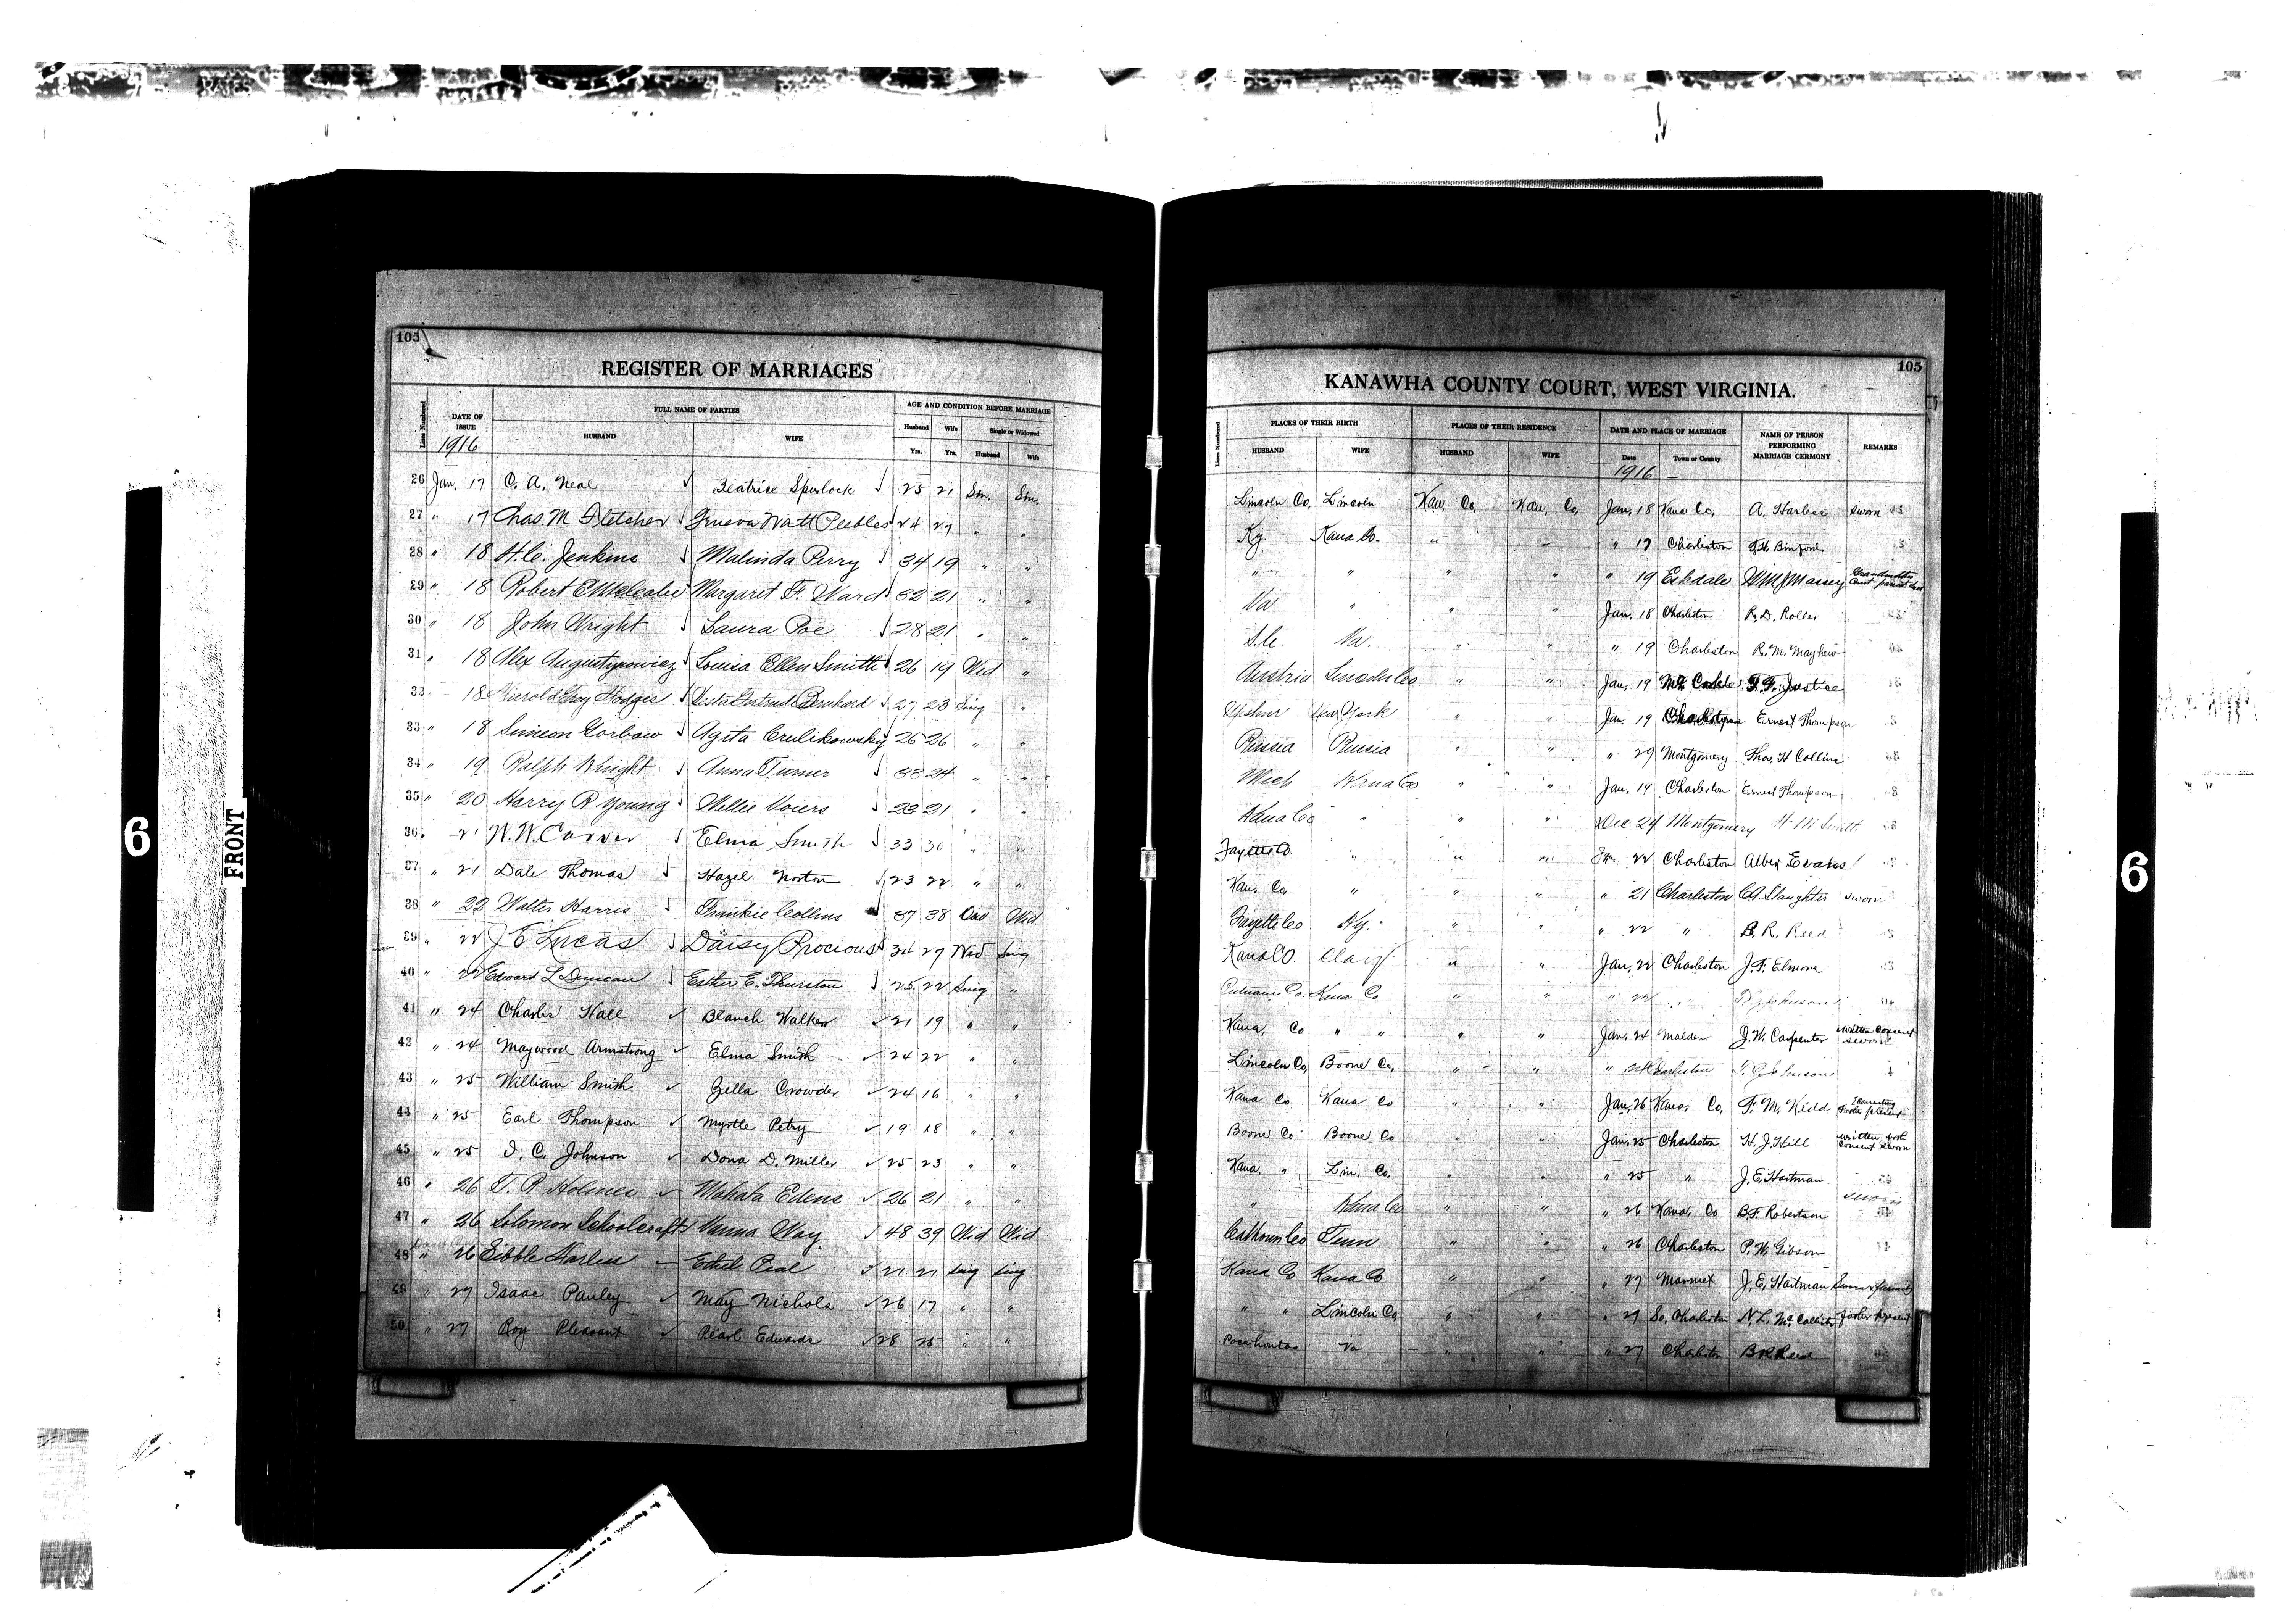 6
FRONT
105
REGISTER OF MARRIAGES
Lines Numbered
DATE OF ISSUE
FULL NAME OF PARTIES
AGE AND CONDITION BEFORE MARRIAGE
HUSBAND WIFE
Husband Wife Single or Widowed
Yrs. Yrs. Husband Wife
1916
26 Jan. 17 C. A. Neal Beatrice Spurlock 25 21 Sin. Sin.
27 " 17 Chas. M Fletcher Geneva Watt Peebles 24 27 " "
28 " 18 H. C. Jenkins Malinda Perry 34 19 " "
29 " 18 Robert E Margaret F. Ward 32 21 " "
30 " 18 John Wright Laura Poe 28 21 " "
31 " 18 Alex Augustynowicz Louisa Ellen Smith 26 19 Wid "
32 18 Guy Hodges Gertrude 27 23 Sing "
33 " 18 Simeon Gorbaw Agita Crulikowsky 26 26 " "
34 " 19 Ralph Knight Anna Turner 33 24 " "
35 " 20 Harry R Young Willie Voiers 23 21 " "
36 " 21 W. W. Carver Elma Smith 33 30 " "
37 " 21 Dale Thomas Hazel Norton 23 22 " "
38 " 22 Walter Harris Frankie Collins 37 38 Wid
39 " 22 J E Lucas Daisy Procious 34 27 Wid Sing
40 " 22 Edward L Duncan Esther E. Thurston 25 22 Sing "
41 " 24 Charles Hall Blanch Walker 21 19 " "
42 " 24 Maywood Armstrong Elma Smith 24 22 " "
43 " 25 William Smith Zella Crowder 24 16 " "
44 " 25 Earl Thompson Myrtle Petry 19 18 " "
45 " 25 I. C. Johnson Dona D. Miller 25 23 " "
46 " 26 T. R Holmes Mahala Edens 26 21 " "
47 " 26 Solomon Schoolcraft Way 48 39 Wid Wid
48 " 26 Sibble Harless Ethel Peal 21 21 Sing Sing
49 " 27 Isaac Pauley May Nichols 26 17 " "
50 " 27 Roy Pleasant Pearl Edwards 28 25 " "
105
KANAWHA COUNTY COURT, WEST VIRGINIA.
Lines Numbered
PLACES OF THEIR BIRTH
PLACES OF THEIR RESIDENCE
DATE AND PLACE OF MARRIAGE
NAME OF PERSON PERFORMING MARRIAGE CERMONY
REMARKS
HUSBAND WIFE HUSBAND WIFE Date Town or County
1916
Lincoln Co, Lincoln Kan, Co, Kan, Co, Jan, 18 Kana Co, A. Harless sworn
Ky. Kana Co. " " " 17 Charleston
" " " " " 19 Eskdale Wm J Massey
Va " " " Jan. 18 Charleston R. D. Roller
S.C. Va. " " " 19 Charleston R. M. Mayhew
Austria Lincoln Co " " Jan, 19 F. F. Justice
Upshur New York Jan, 19 Ernest Thompson
Russia Russia " " " 29 Montgomery Thos. H Collins
Mich Kana Co " " Jan, 19 Charleston Ernest Thompson
Kana Co " " " Dec 24 Montgomery H M Smith
Fayette Co " " " 22 Charleston Albert Evans
Kan. Co " " " " 21 Charleston Slaughter sworn
Fayette Co Ky. " " " 22 " B. R. Reed
Kana CO Clay " " Jan, 22 Charleston J. F. Elmore
Putnam Co. Kana Co " " " 22 "
Kana, Co " " " " Jan, 24 Malden J. W. Carpenter written consent sworn
Lincoln Co, Boone Co, " " " 24 Charleston
Kana Co Kana Co " " Jan, 26 Kana, Co, F. M. Kidd
Boone Co Boone Co " " Jan, 25 Charleston H. J. Hill written consent sworn
Kana, " Lin. Co, " " " 25 " J. E. Hartman
" Kana Co " " " 26 Kana, Co B. F. Robertson sworn
Calhoun Co Tenn " " " 26 Charleston P. W. Gibson
Kana Co Kana Co " " " 27 Marmet J. E. Hartman
" " Lincoln Co, " " " 29 So, Charleston N. L. McCallister father present
Pocahontas Va " " " 27 Charleston B R Reed
6